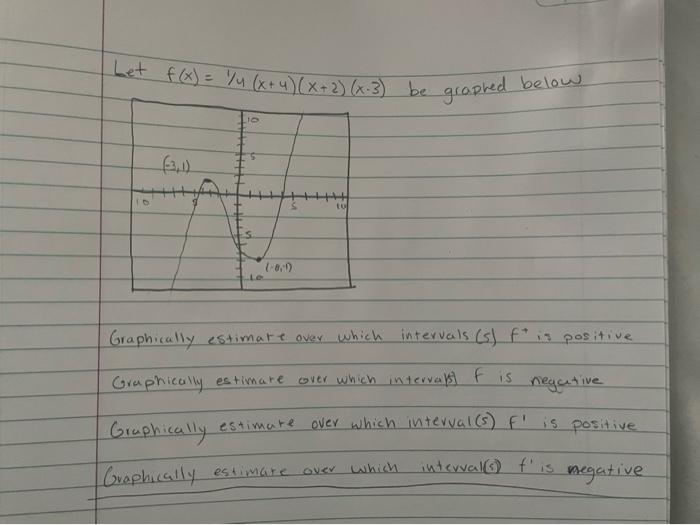 Let f(x) = 1/4 (x+4)(x+2)(x-3) be graphed below
10
(-3,1)
5
10 5 5 10
5
(-8,-1)
10
Graphically estimate over which intervals (s) f+ is positive
Graphically estimate over which interval(s) f is negative
Graphically estimate over which interval(s) f' is positive
Graphically estimate over which interval(s) f' is negative